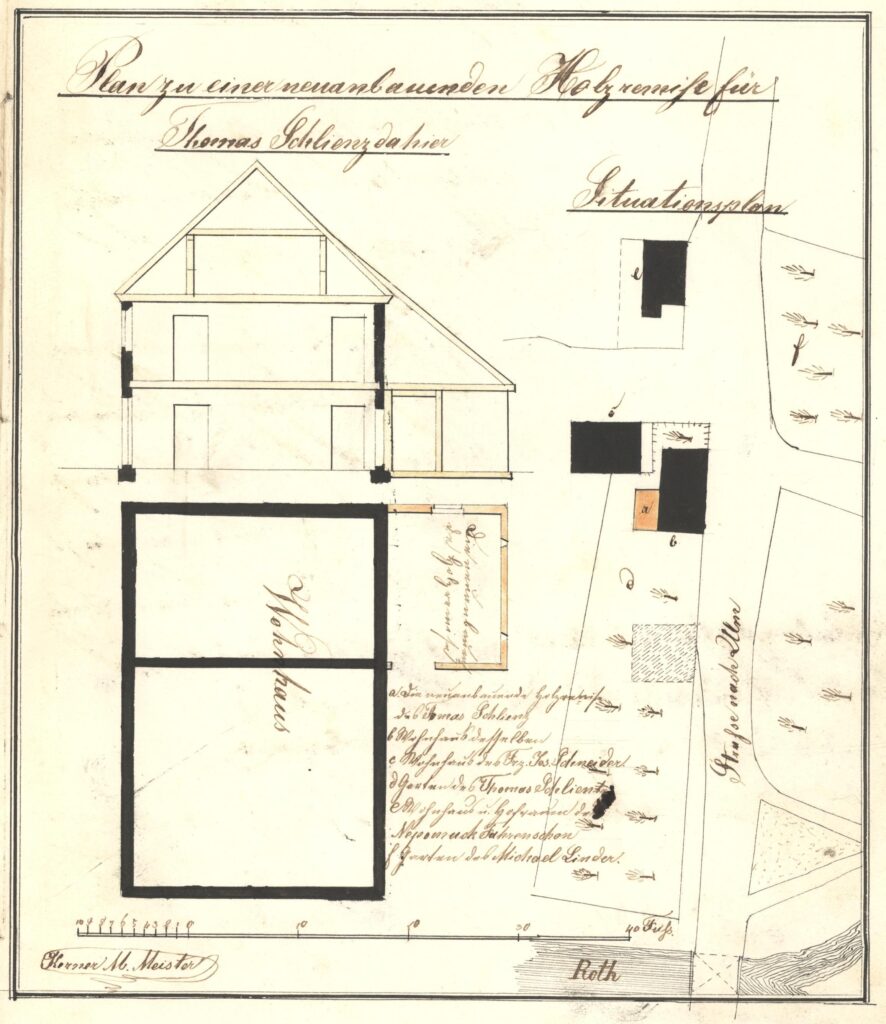 Plan zu einer neuanbauenden Holzremise für
Thomas Schlienz dahier
Situationsplan
e
f
c
a
b
d
Die neuanbauende
Holzremise
Wohnhaus
Straße nach Ulm
a Die neuanbauende Holzremise
des Tomas Schlienz
b Wohnhaus desselben
c Wohnhaus des Frz. Jos. Schneider
d Garten des Thomas Schlienz
e Wohnhaus u. Hofraum des
Nepomuck Fahrenschon
f Garten des Michael Linder.
10 9 8 7 6 5 4 3 2 1 0 10 20 30 40 Fuß.
Kerner M. Meister
Roth